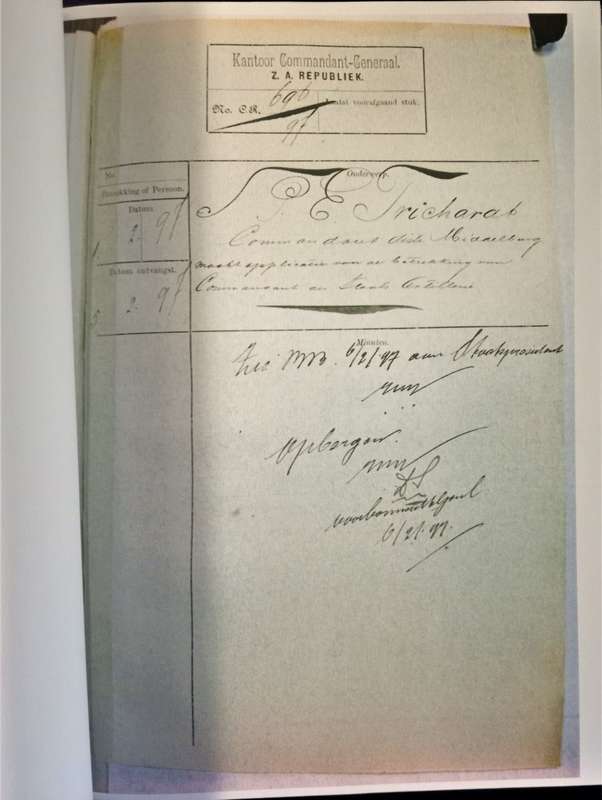 Kantoor Commandant-Generaal.
Z. A. REPUBLIEK.
No. C.R. 696/97
Aantal voorafgaand stuk.
No.
Betrekking of Persoon.
Datum.
1 2 97
Datum ontvangst.
5 2 97
Onderwerp.
S. P. E. Trichardt
Commandant distr Middelburg
maakt applicatie van de betrekking van
Commandant der Staats Artillerie
Minuten.
6/2/97 aan Staatspresident
Opbergen.
6/2/97.